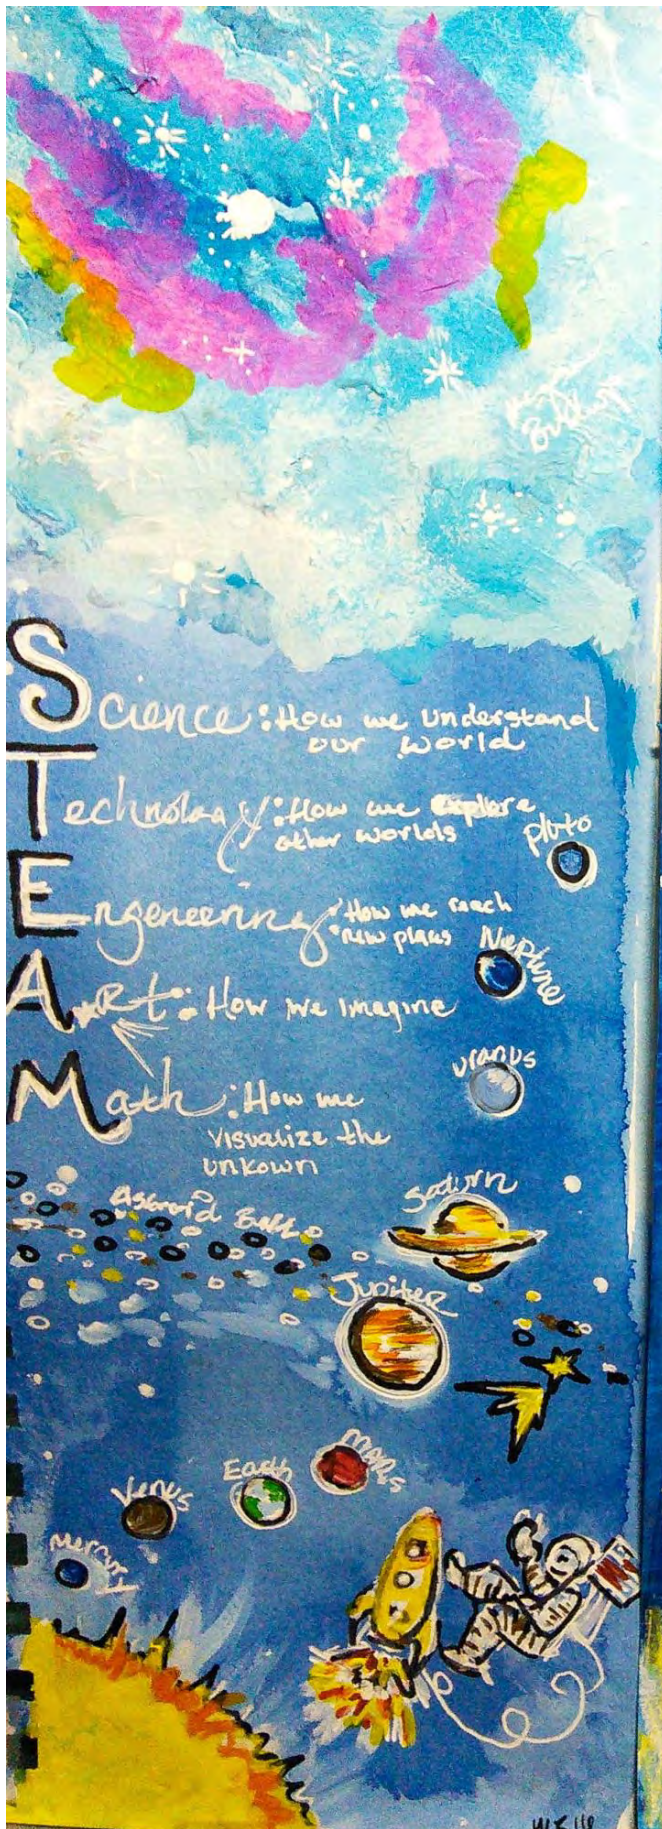 Science: How we understand
our world
Technology: How we explore
other worlds
Pluto
Engeneering: How we reach
new places
Neptune
Art: How we imagine
Uranus
Math: How we
visualize the
unkown
Saturn
Asteroid Belt
Jupiter
Mars
Earth
Venus
Mercury